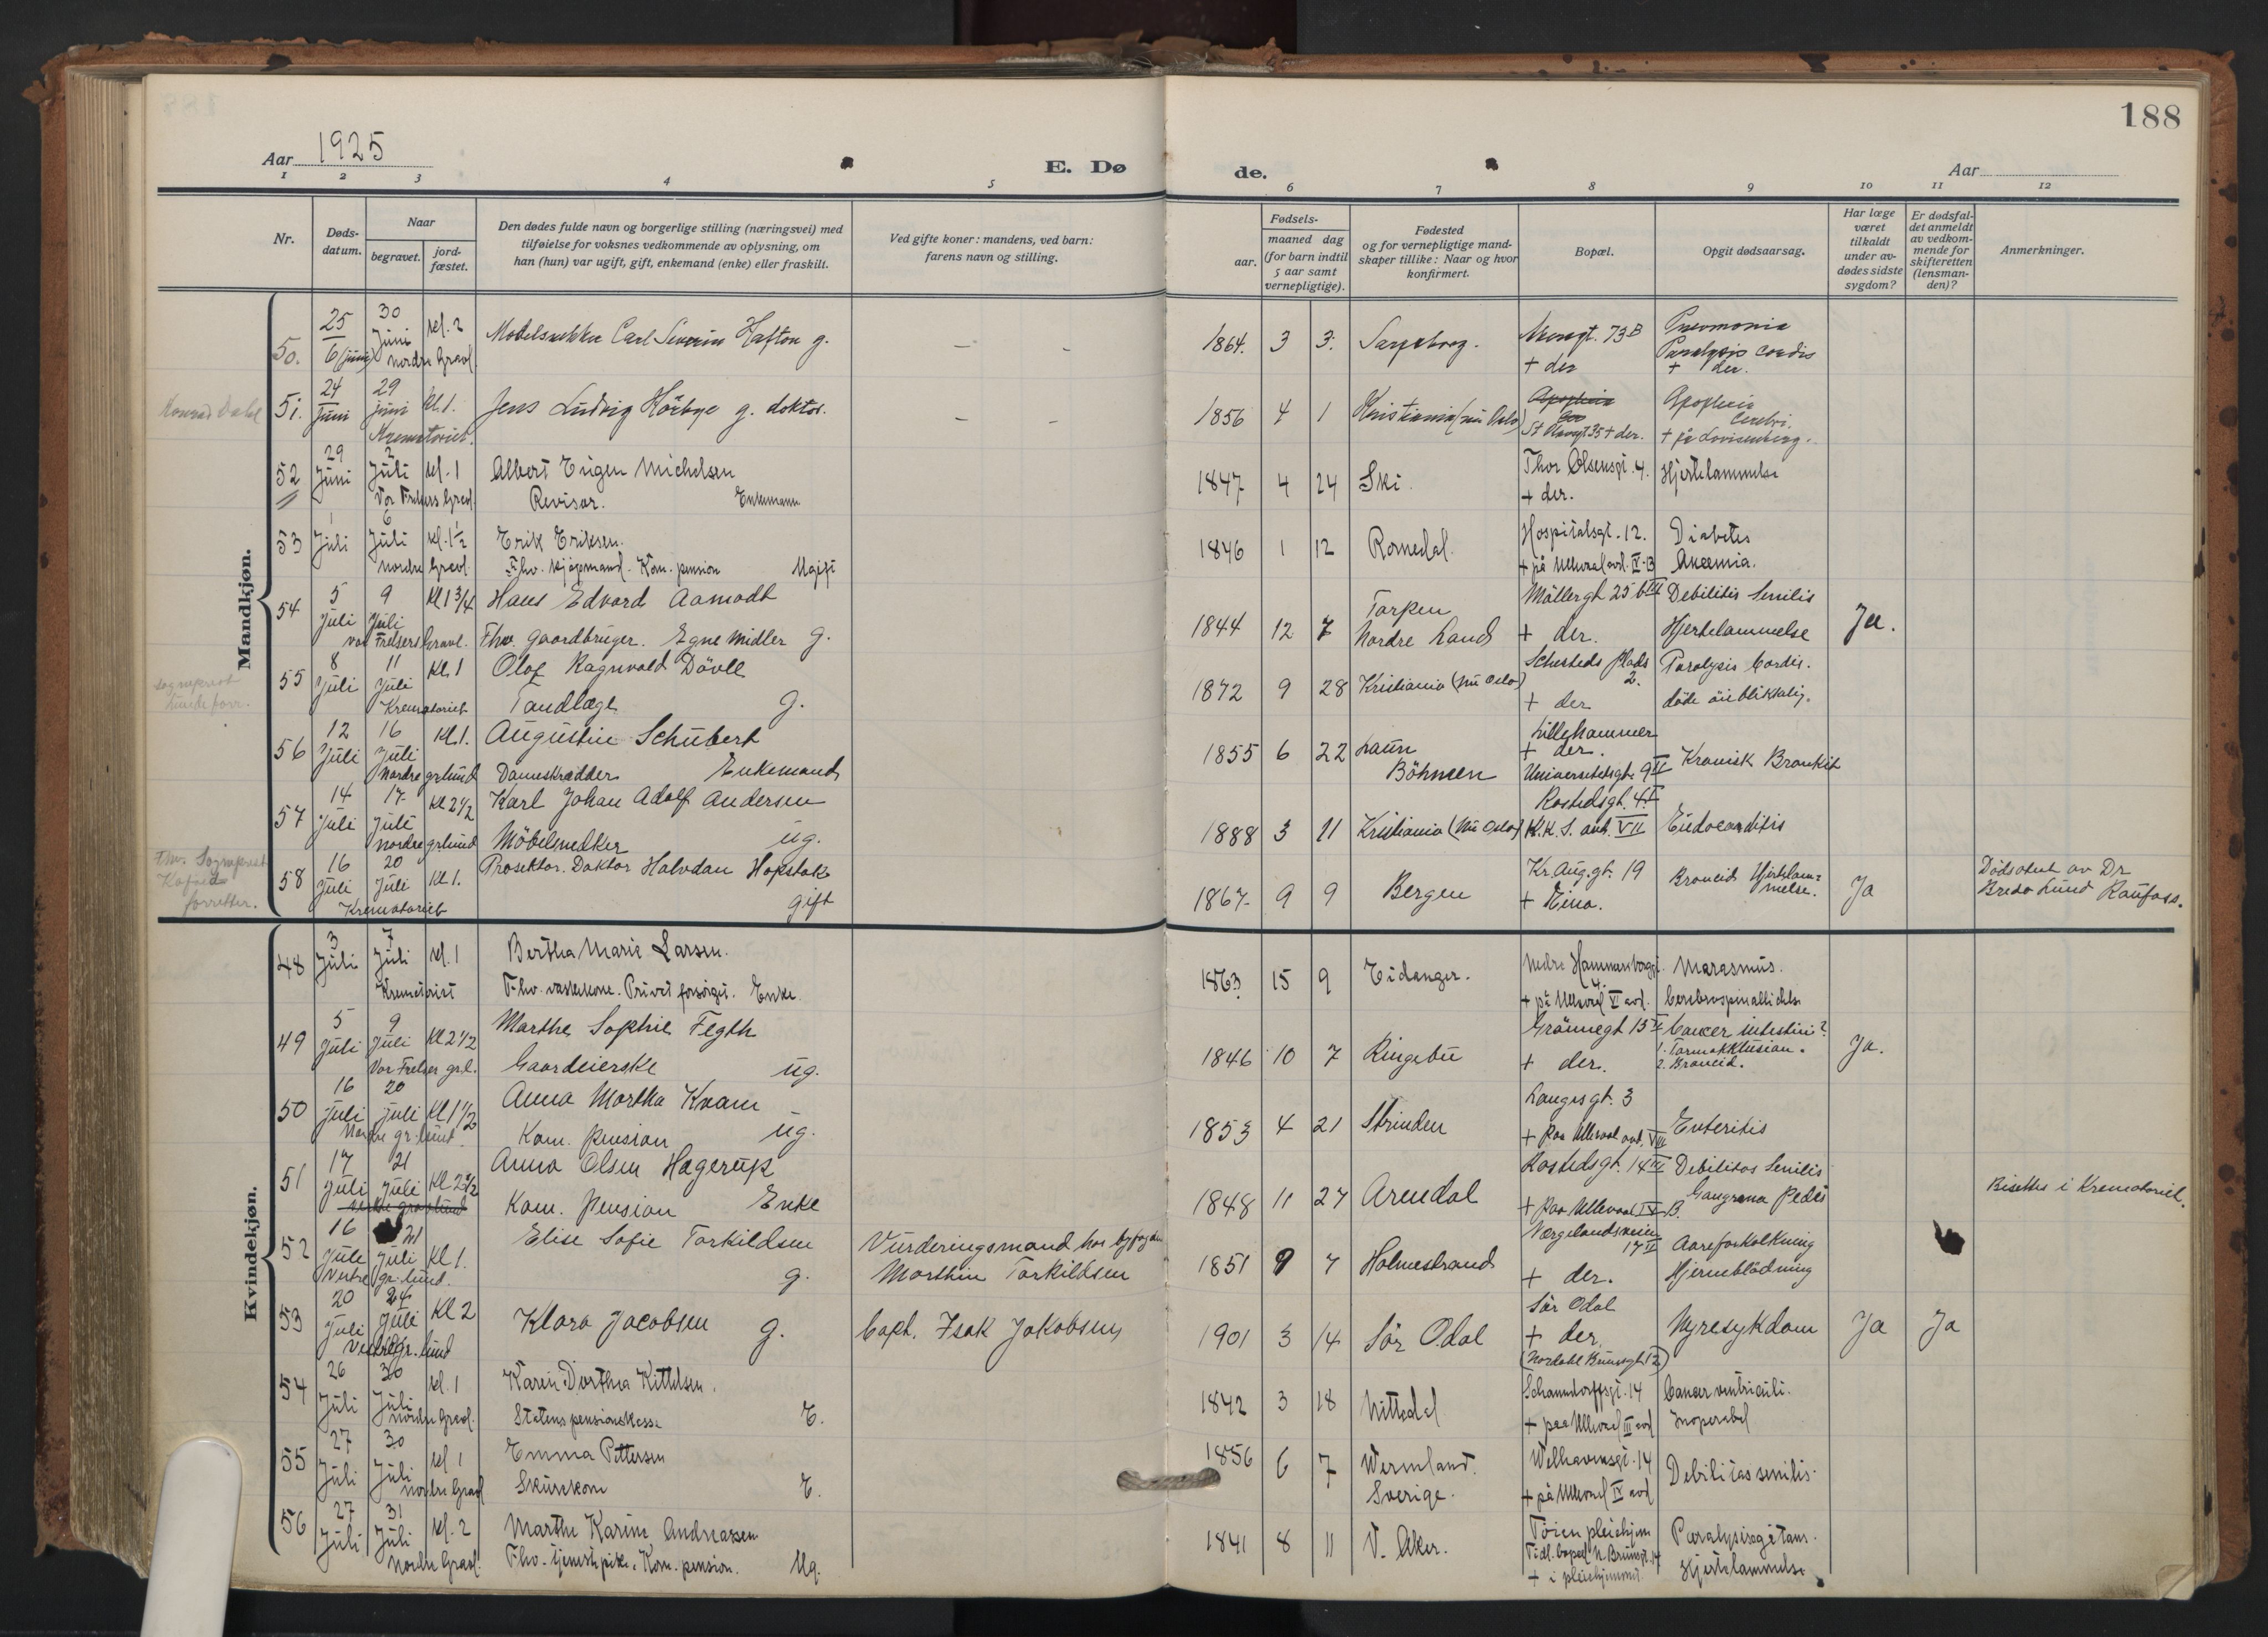 188
Aar 1925
E. Dø
de.
Aar
1 2 3 4 5 6 7 8 9 10 11 12
Nr.
Døds-
datum.
Naar
begravet.
jord-
fæstet.
Den dødes fulde navn og borgerlige stilling (næringsvei) med
tilføielse for voksnes vedkommende av oplysning, om
han (hun) var ugift, gift, enkemand (enke) eller fraskilt.
Ved gifte koner: mandens, ved barn:
farens navn og stilling.
Fødsels-
aar.
maaned dag
(for barn indtil
5 aar samt
vernepligtige).
Fødested
og for vernepligtige mand-
skaper tillike: Naar og hvor
konfirmert.
Bopæl.
Opgit dødsaarsag.
Har læge
været
tilkaldt
under av-
dødes sidste
sygdom?
Er dødsfal-
det anmeldt
av vedkom-
mende for
skifteretten
(lensman-
den)?
Anmerkninger.
Mandkjøn.
50. 25 6 (juni) 30 Juni kl. 2 Nordre Gravl.
Carl Severin Hafton g.
1864. 3 3. Sarpsborg. 73B + der
Pneumonia
Paralysis cordis
+ der.
Konrad Dahl
51. 24 Juni 29 Juni kl. 1. Krematoriet.
Jens Ludvig Hörbye g. doktor.
1856 4 1 Kristiania (nu Oslo)
Apoplexia
35 + der.
Apoplexia
Cerebri.
+ på Lovisenberg.
52 29 Juni 2 Juli kl. 1 Vor Frelsers Gravl.
Albert Eugen Michelsen
Revisor. Enkemann
1847 4 24 Ski.
Thor Olsensgt. 4.
+ der.
Hjertelammelse
53 1 Juli 6 Juli kl. 1½ Nordre Gravl.
Erik Eriksen.
Fhv. kjøpmand. Kom. pension Ugift
1846 1 12 Romedal.
Hospitalsgt. 12.
+ på Ullevaal avd. IV-B
Diabetes
Anæmia.
54 5 Juli 9 Juli Kl 1 3/4 Vor Frelsers Gravl.
Hans Edvard Aamodt
Fhv. gaardbruger. Egne midler g.
1844 12 7 Torpen
Nordre Land
Möllergt 25 b III
+ der.
Debilitis Senilis
Hjertelammelse
Ja.
Sogneprest
Lunde forr.
55 8 Juli 11 Juli Kl 1 Krematoriet
Olaf Ragnvald Dövle
Tandlæge g.
1872 9 28 Kristiania (nu Oslo)
Sehesteds plads
2.
+ der
Paralysis Cordis.
döde öieblikkelig.
56 12 Juli 16 Juli Kl 1. Nordre grlund
Augustin Schubert
Dameskrædder Enkemand
1855 6 22 Laun
Böhmen
Lillehammer
+ der.
Universitetsgt. 9 II
Kronisk Bronkit
57 14 Juli 17 Juli Kl 2½ Nordre grlund
Karl Johan Adolf Andersen
Möbelsnedker ug.
1888 3 11 Kristiania (nu Oslo)
Rostedsgt. 4 I
K.K.S. avd. VII
Endocarditis
fhv. Sogneprest
Kofoed
forretter.
58 16 Juli 20 Juli Kl 1. Krematoriet
Prosektor. Doktor Halvdan Hopstok
gift
1867 9 9 Bergen
Kr. Aug. gt. 19
+ Eina.
Broncit Hjertelam=
melse.
Ja
Dödsattest av Dr
Bredo Lund Raufoss.
Kvindekjøn.
48 3 Juli 7 Juli kl. 1 Krematoriet
Bertha Marie Larsen.
Fhv. vaskekone. Privat forsörget. Enke.
1863 15 9 Eidanger.
Nedre Hammersborggt.
4.
+ på Ullevaal V avd.
Marasmus.
49 5 Juli 9 Juli Kl 2½ Vor Frelser grl.
Marthe Sophie Fegth
Gaardeierske ug.
1846 10 7 Ringebu
Grönnegt 15 II
+ der.
Cancer intestini?
1. Tarmokklusion.
2. Broncit.
Ja.
50 16 Juli 20 Juli Kl 1½ Nordre gr. lund.
Anna Martha Kvam
Kom. pension ug.
1853 4 21 Strinden
Langesgt. 3
+ paa Ullevaal avd. VIII
Enteritis
51 17 Juli 21 Juli Kl 2½
Anna Olsen Hagerup
Kom. pension Enke
1848 11 27 Arendal
Rostedsgt. 14 III
+ paa Ullevaal IV B.
Debilitas Senilis
Gangræna Pedis
Bisættes i Krematoriet.
52 16 Juli 21 Juli Kl 1. Vestre gr. lund.
Elise Sofie Torkildsen g.
Vurderingsmand hos byfogden
Marthin Torkildsen
1851 9 7 Holmestrand
Vergelandsveien
17 II
+ der.
Aareforkalkning
Hjerneblödning
53 20 Juli 24 Juli Kl 2 Vestre gr. lund
Klara Jacobsen g.
Capt. Isak Jakobsen
1901 3 14 Sör Odal
Sör Odal
+ der.
(Nordahl Brunsgt 12)
Nyresykdom
Ja Ja
54 26 Juli 30 Juli kl. 1 Nordre Gravl.
Karen Dorthea Kittelsen.
Statens pensionskasse E.
1842 3 18 Nittedal
Schanndorffsgt. 14
+ paa Ullevaal III avd
Cancer ventriculi.
Inoperabel
55 27 Juli 30 Juli kl 1 Nordre Gravl
Emma Pettersen
Skurekone E.
1856 6 7 Wermland.
Sverige.
Welhavensgt. 14
+ på Ullevaal IV avd
Debilitas senilis.
56 27 Juli 31 Juli kl. 2 Nordre Gravl.
Marthe Karine Andreassen
Fhv. tjenestepike. Kom. pension. Ug.
1841 8 11 V. Aker.
Töien pleiehjem
Tidl. bopæl N. Brunsgt. 14
+ i pleiehjemmet.
Paralysis agitans.
Hjertelammelse